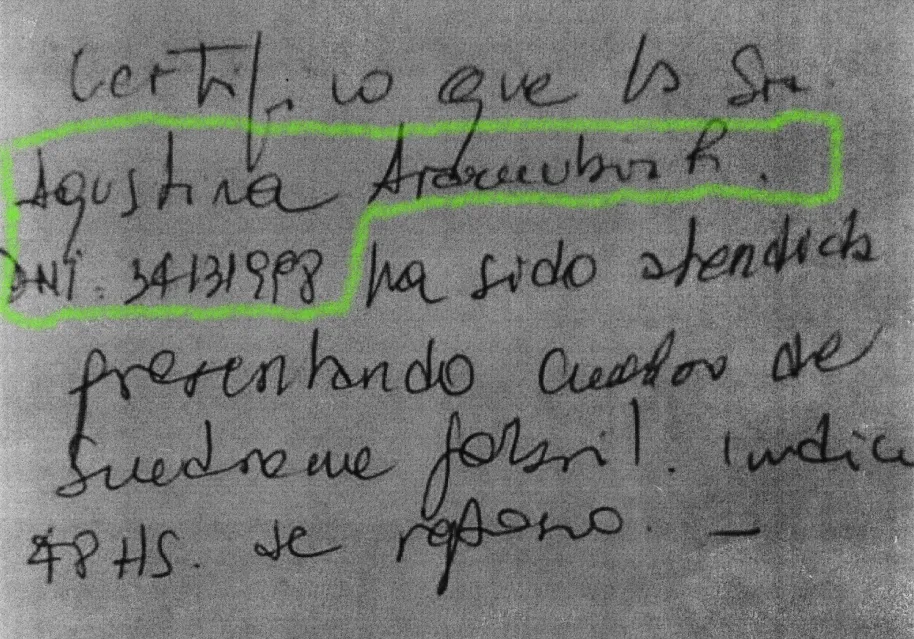 Certifico que la Sra
Agustina
DNI: 34131998 ha sido atendida
presentando cuadro de
Sindrome febril. Indico
48 HS. de reposo. —